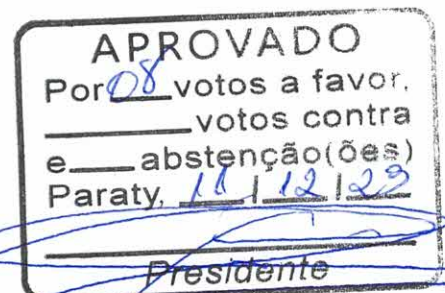 APROVADO
Por 08 votos a favor,
_______ votos contra
e____ abstenção(ões)
Paraty, 11 / 12 / 23
Presidente